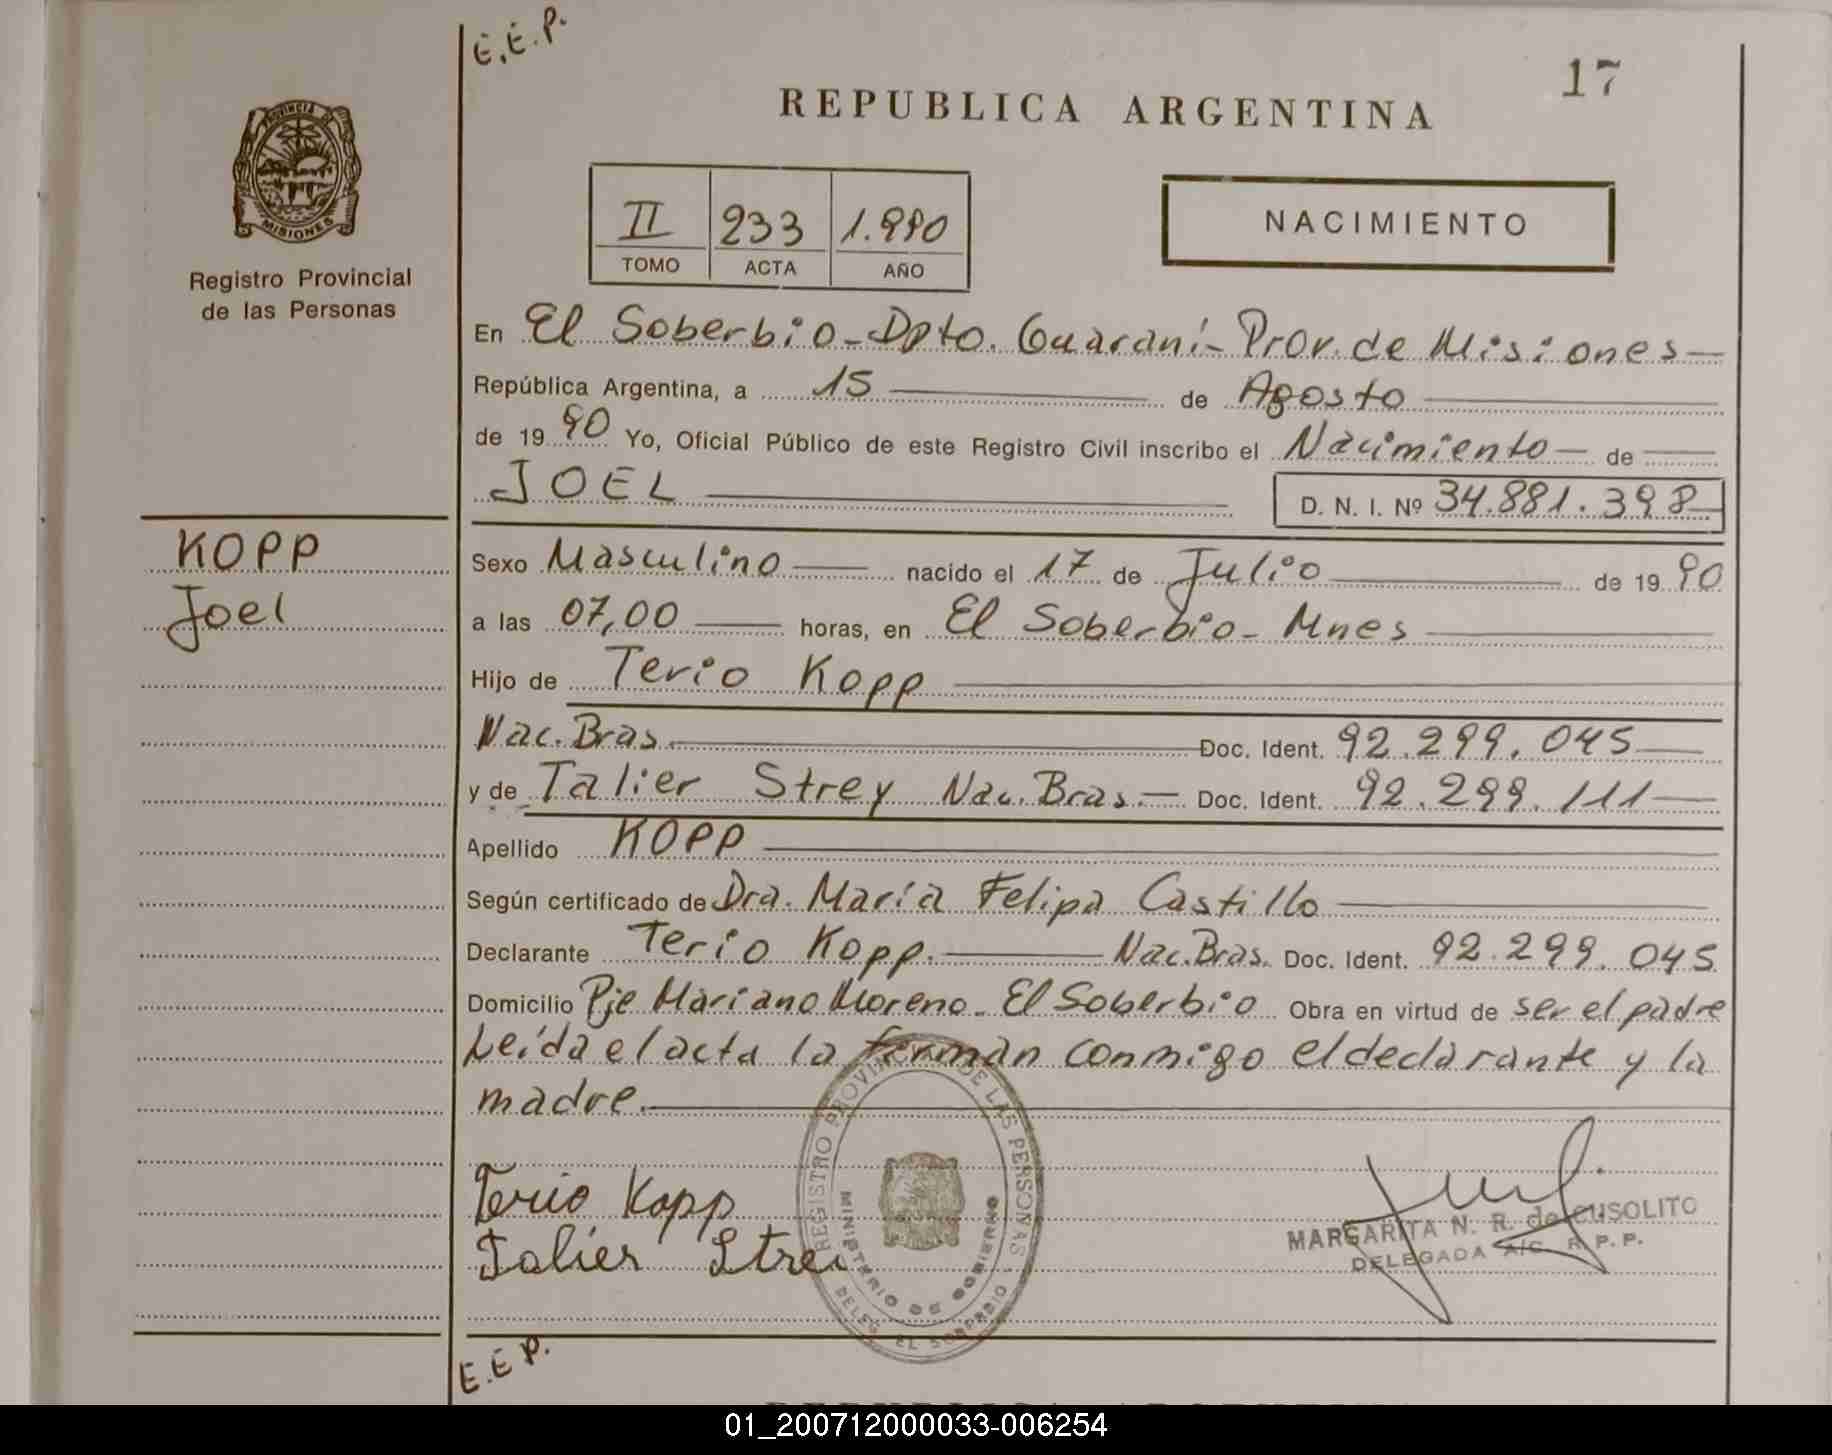 E.E.P.
17
REPUBLICA ARGENTINA
PROVINCIA DE MISIONES
Registro Provincial
de las Personas
II 233 1.990
TOMO ACTA AÑO
NACIMIENTO
En El Soberbio - Dpto. Guaraní - Prov. de Misiones
República Argentina, a 15 de Agosto
de 19 90 Yo, Oficial Público de este Registro Civil inscribo el Nacimiento de
JOEL D. N. I. Nº 34.881.398
KOPP
Joel
Sexo Masculino nacido el 17 de Julio de 19 90
a las 07,00 horas, en El Soberbio - Mnes
Hijo de Terio Kopp
Nac. Bras. Doc. Ident. 92.299.045
y de Talier Strey Nac. Bras. Doc. Ident. 92.299.111
Apellido KOPP
Según certificado de Dra. María Felipa Castillo
Declarante Terio Kopp. Nac. Bras. Doc. Ident. 92.299.045
Domicilio Pje Mariano Moreno - El Soberbio Obra en virtud de ser el padre
Leída el acta la firman conmigo el declarante y la
madre.
Terio Kopp
Talier Strei
REGISTRO PROVINCIAL DE LAS PERSONAS
MINISTERIO DE GOBIERNO
DELEG. EL SOBERBIO
MARGARITA N. R. de CUSOLITO
DELEGADA A/C R. P. P.
E.E.P.
REPUBLICA ARGENTINA
01_200712000033-006254